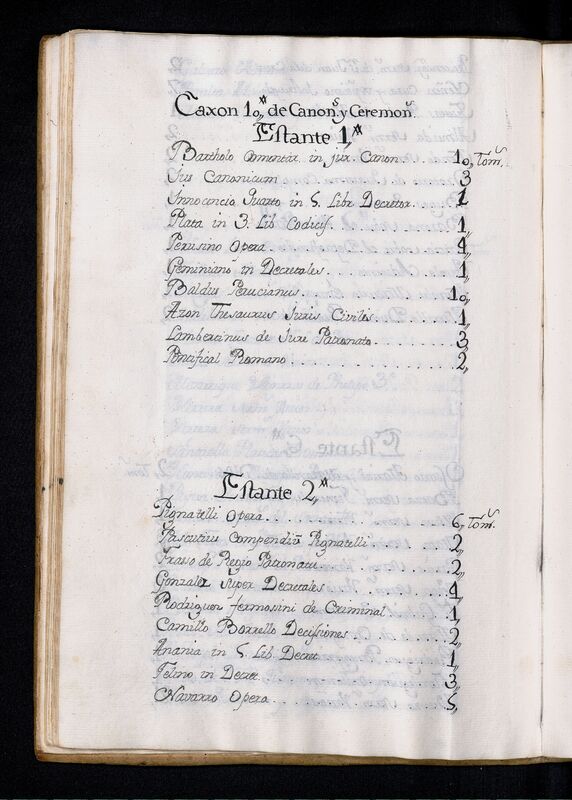 Caxon 10,, de Canon.s y Ceremon.s
Estante 1,,
Bartholo Comentár. in jur. Canon 10,, Tom.s
Jus Canonicum 3
Innocencio Quarto in 5. Libr Decretor. 1
Plata in 3. Lib Codicis. 1,,
Perusino Opera. 4,,
Geminiano in Decretales. 1,,
Baldus Perucianus. 10,,
Azon Thesaurus Juris Civilis 1,,
Lambercinus de Jure Patronato. 3
Pontifical Romano 2,,
Estante 2,,
Pignatelli Opera. 6,, Tom.s
Pascutius Compendiũ Pignatelli 2,,
Frasso de Regio Patronatu 2,,
Gonzalez Super Decretales 4,,
Rodriguen fermosini de Criminal 1,,
Camillo Borrello Decissiones 2,,
Anania in 5 Lib Decret 1,,
Felino in Decret. 3,,
Navarro Opera 5,,